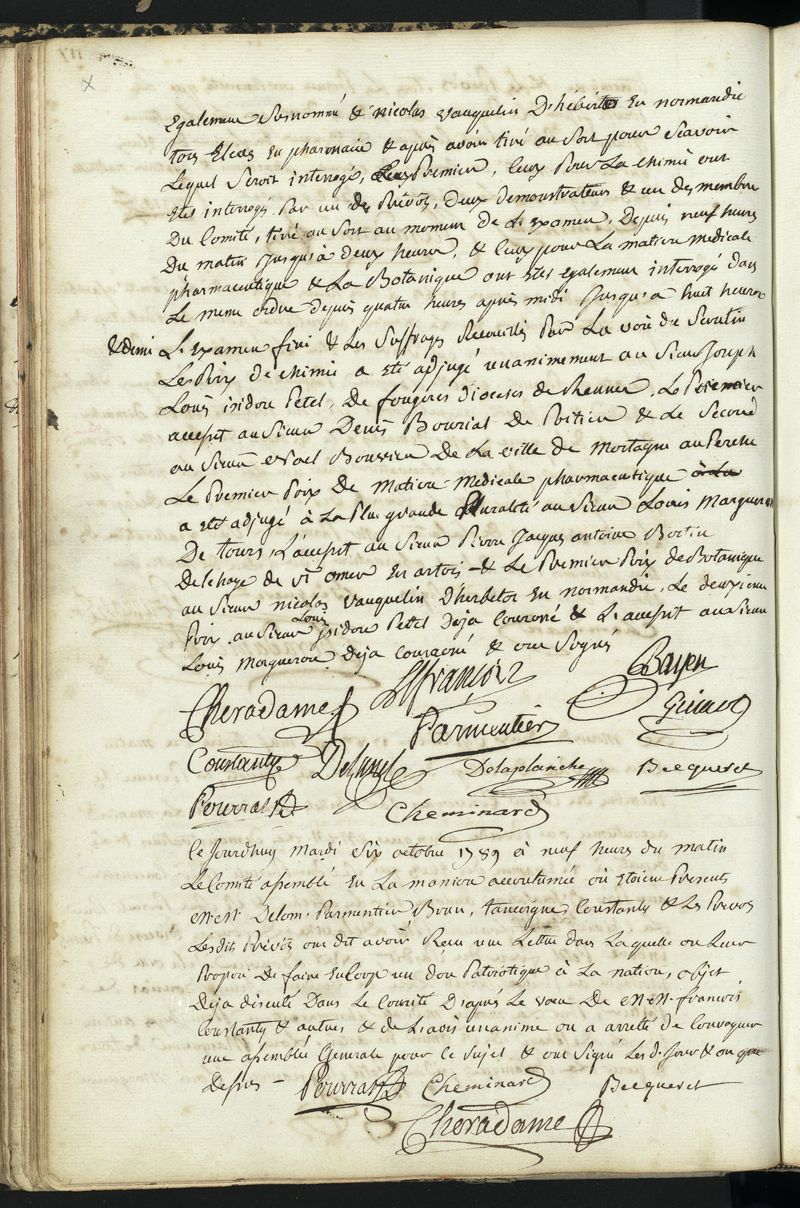 Egalement susnommé & nicolas vauquelin D'hébertot En normandie
tous Eleves En pharmacie & après avoir tiré au sort pour Scavoir
Lequel Seroit interrogé, Les Premier, ceux Pour La chimie ont
Etés interrogés Par un des Prévôs, Deux demonstrateurs & un des membre
Du Comité, tiré au Sort au moment de L'Examen, Depuis neuf heures
Du matin Jusqu'à deux heures, & ceux pour La matiere medicale
pharmaceutique & La Botanique ont Etés Egalement interrogés dans
Le meme ordre depuis quatre heures après midi Jusqu'a huit heures
& demi L'Examen fini & Les Suffrages Recueillis Par La voie de Scrutin
Le Prix De chimie a Eté adjugé unanimement au Sieur Joseph
Louis isidore Petel, De fougeres Diocese de Rennes, Le Premier
accesit au Sieur Denis Bouriat De Poitier & Le Second
au Sieur Noel Boussier De La ville De Mortagne au Perche
Le Premier Prix De Matiere Medicale pharmaceutique à La
a Eté adjugé à La Plus grande Pluralité au Sieur Louis Margueron
De tours, L'accesit au Sieur Pierre Jacques antoine Bortin
Delehaye de St omer En artois & Le Premier Prix de Botanique
au Sieur nicolas Vauquelin D'herbetot En normandie, Le deuxieme
Prix au Sieur Louis Isidore Petel Deja Couroné & L'accesit au Sieur
Louis Margueron Deja couroné & ont Signés
Cheradame Lfrançois Bayen
Parmentier Guiart
Constanty Delunel Delaplanche Becqueret
Pourrat Cheminard
Ce Jourdhuy Mardi Six octobre 1789 à neuf heures du matin
Le Comité assemblé En La maniere accoutumée où Etoient Presents
MM. Delom. Parmentier Brun, tancoigne, Constanty & Les Prevos
Lesdits Prévôs ont dit avoir Recu une Lettre dans Laquelle on Leur
Propose De faire En Corps un don Patriotique à La nation, objet
Deja discuté Dans Le Comité D'après Le voeu De MM. francois
Constanty & autres & de L'avis unanime on a arreté de Convoquer
une assemblée Generale pour ce Sujet & ont Signé Les d. Jour & an que
dessus - Pourrat Cheminard Becqueret
Cheradame